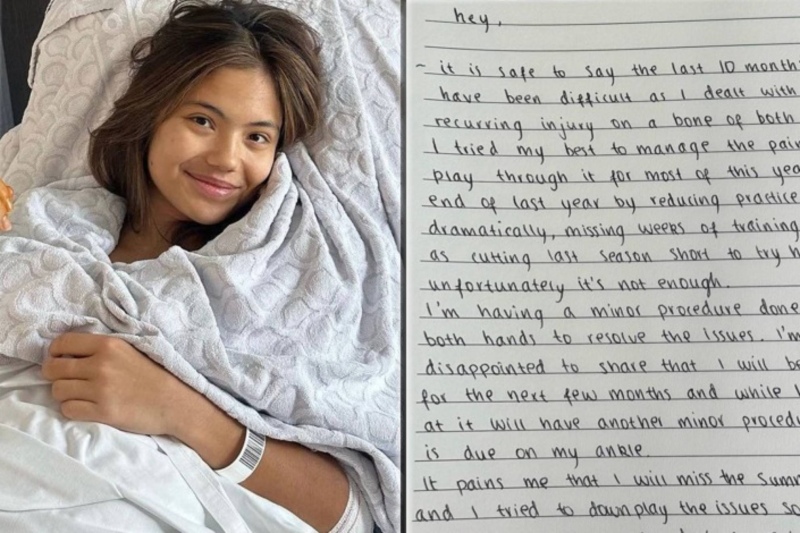 hey,
~ it is safe to say the last 10 month
have been difficult as I dealt with
recurring injury on a bone of both
I tried my best to manage the pain
play through it for most of this yea
end of last year by reducing practice
dramatically, missing weeks of training
as cutting last season short to try h
unfortunately it's not enough.
I'm having a minor procedure done
both hands to resolve the issues. I'm
disappointed to share that I will be
for the next few months and while I
at it will have another minor procedu
is due on my ankle.
It pains me that I will miss the summ
and I tried to downplay the issues so